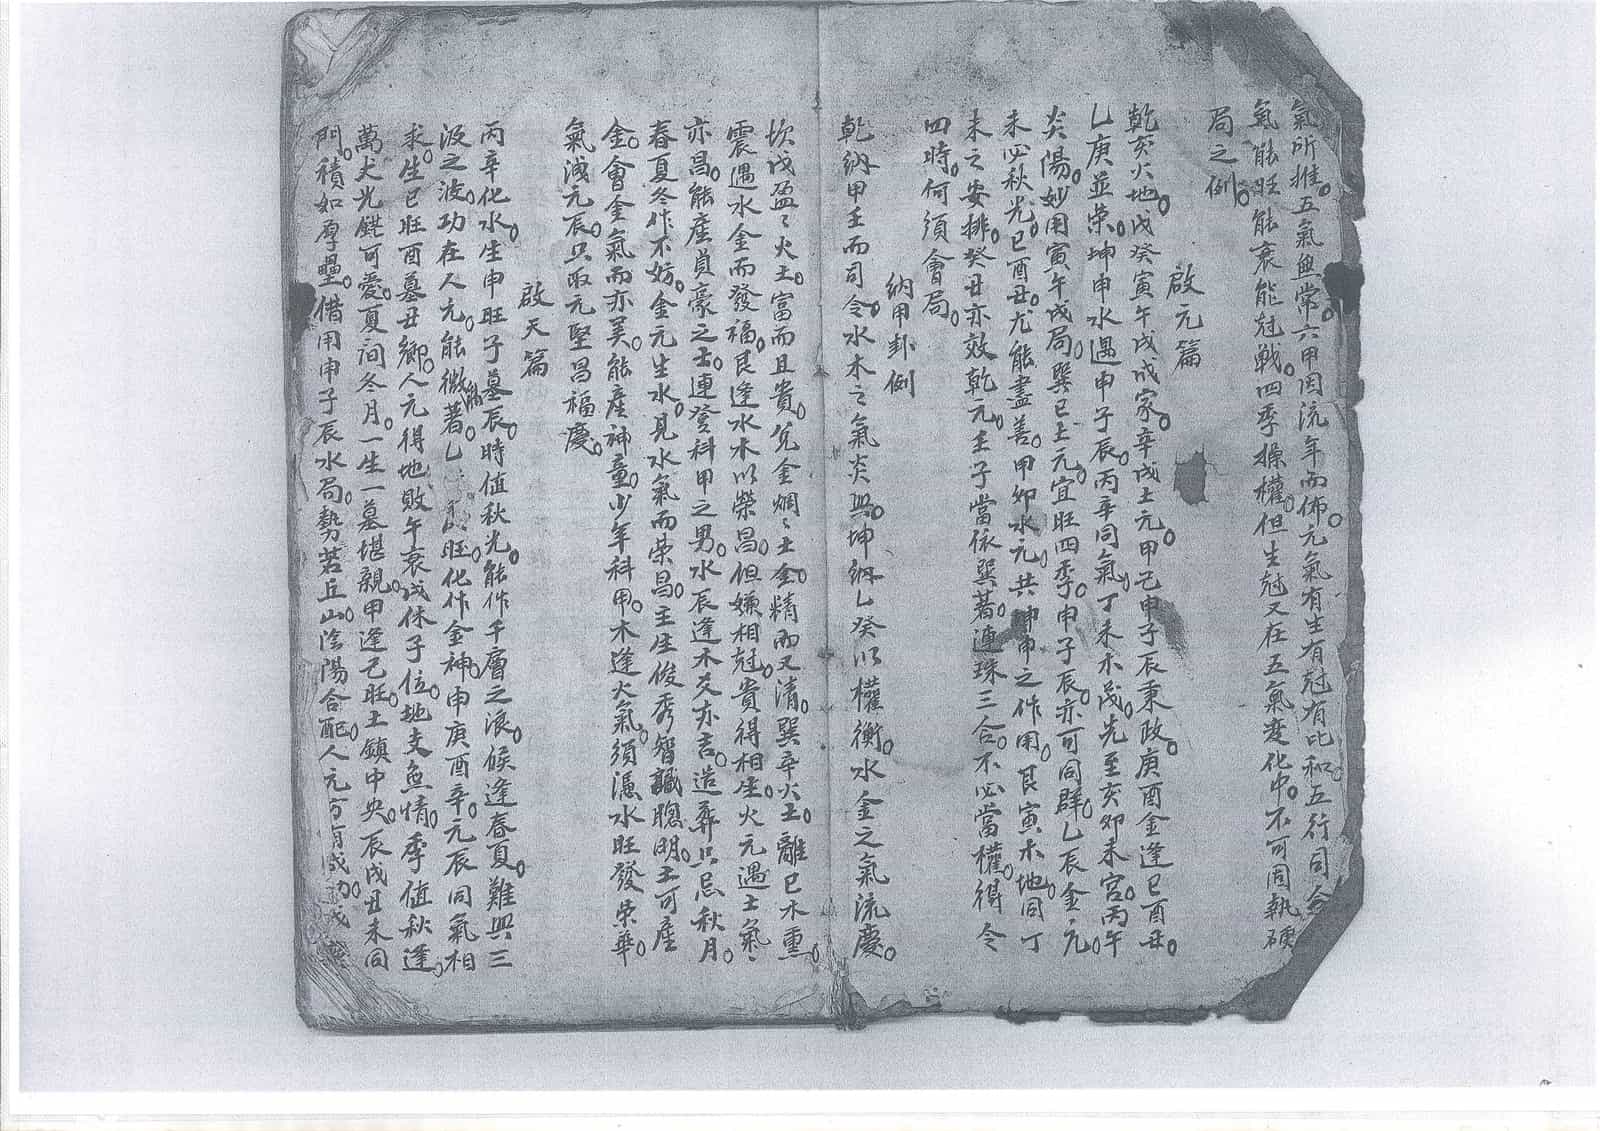 氣所推。五氣無常。六甲因流年而佈。元氣有生有尅有比和。五行司令
氣能旺能衰能尅戰。四季操權。但生尅又在五氣变化中。不可固執硬
局之例。
啟元篇
乾亥火地。戊癸寅午戌成家。辛戌土元。甲己申子辰秉政。庚酉金逢巳酉丑。
乚庚並荣。坤申水遇申子辰。丙辛同氣。丁未木
炎陽。妙用寅午戌局。巽巳土元。宜旺四季。申子辰。亦可同群。乚辰金元。
未必秋光。巳酉丑。尤能盡善。甲卯水元。共坤申之作用。艮寅木地。同丁
未之安排。癸丑亦效乾元。壬子當依巽著。連珠三合。不必當權。得令
四時。何須會局。
納甲卦例
乾納甲壬而司令。水木之氣炎興。坤納乚癸以權衡。水金之氣流慶。
坎戊盈〻火土。富而且貴。兌金烱〻土金。精而又清。巽辛火土。離巳木熏。
震遇水金而發福。艮逢水木以榮昌。但嫌相尅。貴得相生。火元遇土氣〻
亦昌。能產員豪之士。連登科甲之男。水辰逢木爻亦吉。造葬只忌秋月。
春夏冬作不妨。金元生水。見水氣而荣昌。主生俊秀智識聰明。土可產
金。會金氣而亦美。能產神童。少年科甲。木逢火氣。須慿水旺發荣華。
氣洩元辰。只取元堅昌福慶。
啟天篇
丙辛化水。生申旺子墓辰。時值秋光。能作千層之浪。候逢春夏。難興三
汲之波。功在人元。能微能著。乚 旺。化作金神。申庚酉辛。元辰同氣相
求。生巳旺酉墓丑鄉。人元得地。敗午衰戌休子位。地支無情。季值秋逢。
萬丈光鋩可愛。夏间冬月。一生一墓堪親。甲逢己旺。土鎮中央。辰戌丑未同
門。積如厚壘。借用申子辰水局。勢若丘山。陰陽合配。人元方有成功。戊